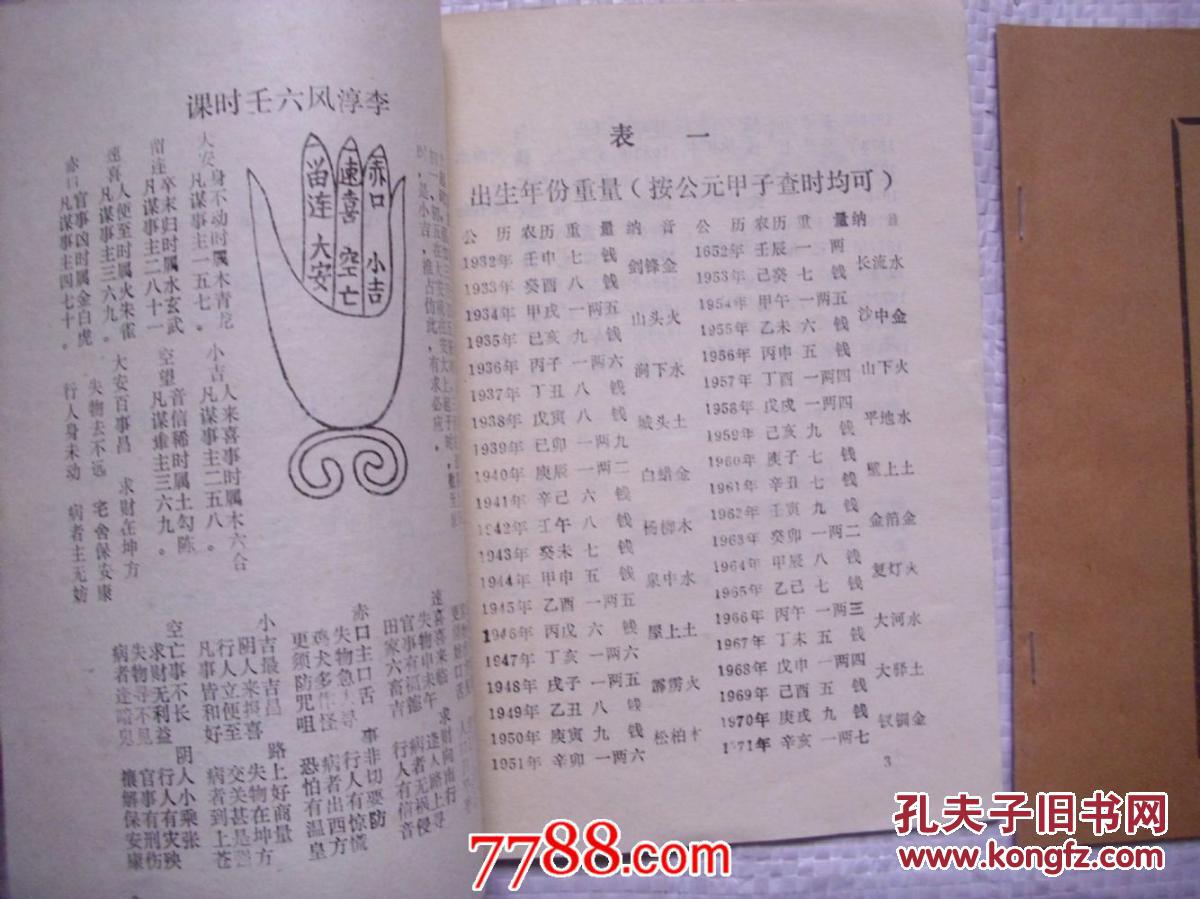 李淳风六壬时课
赤口
速喜
留连
小吉
空亡
大安
大安身不动时属木青龙
凡谋事主一五七。
小吉人来喜事时属木六合
凡谋事主二五八。
卒未归时属水玄武
凡谋事主二八十
空望音信稀时属土勾陈
凡谋难主三六九。
速喜人便至时属火朱雀
凡谋事主三六九。
赤口官事凶时属金白虎
凡谋事主四七十。
大安百事昌 求财在坤方
失物去不远 宅舍保安康
行人身未动 病者主无妨
速喜喜来临 求财向南行
失物申未午 逢人路上寻
官事有福德 病者无祸侵
田家六畜吉 行人有信音
赤口主口舌 事非切要防
失物急去寻 行人有惊慌
鸡犬多作怪 病者出西方
更须防咒咀 恐怕有温皇
小吉最吉昌 路上好商量
阴人来报喜 失物在坤方
行人立便至 交关甚是
凡事皆和好 病者到上苍
空亡事不长 阴人小乘张
求财无利益 行人有灾殃
失物寻不见 官事有刑伤
病者逢暗鬼 禳解保安康
表 一
出生年份重量(按公元甲子查时均可)
公 历 农历 重 量 纳 音
1932年 壬申 七 钱
剑锋金
1933年 癸酉 八 钱
1934年 甲戌 一两五
山头火
1935年 已亥 九 钱
1936年 丙子 一两六
涧下水
1937年 丁丑 八 钱
1938年 戊寅 八 钱
城头土
1939年 已卯 一两九
1940年 庚辰 一两二
白蜡金
1941年 辛己 六 钱
1942年 壬午 八 钱
杨柳木
1943年 癸未 七 钱
1944年 甲申 五 钱
泉中水
1945年 乙酉 一两五
1946年 丙戊 六 钱
屋上土
1947年 丁亥 一两六
1948年 戌子 一两五
霹雳火
1949年 乙丑 八 钱
1950年 庚寅 九 钱
松柏木
1951年 辛卯 一两六
公 历 农历 重 量 纳 音
1652年 壬辰 一 两
长流水
1953年 己癸 七 钱
1954年 甲午 一两五
沙中金
1955年 乙未 六 钱
1956年 丙申 五 钱
山下火
1957年 丁酉 一两四
1958年 戊戌 一两四
平地水
1959年 己亥 九 钱
1960年 庚子 七 钱
壁上土
1961年 辛丑 七 钱
1962年 壬寅 九 钱
金箔金
1963年 癸卯 一两二
1964年 甲辰 八 钱
复灯火
1965年 乙己 七 钱
1966年 丙午 一两三
大河水
1967年 丁未 五 钱
1968年 戊申 一两四
大驿土
1969年 己酉 五 钱
1970年 庚戌 九 钱
钗钏金
1971年 辛亥 一两七
3
7788.com
孔夫子旧书网
www.kongfz.com